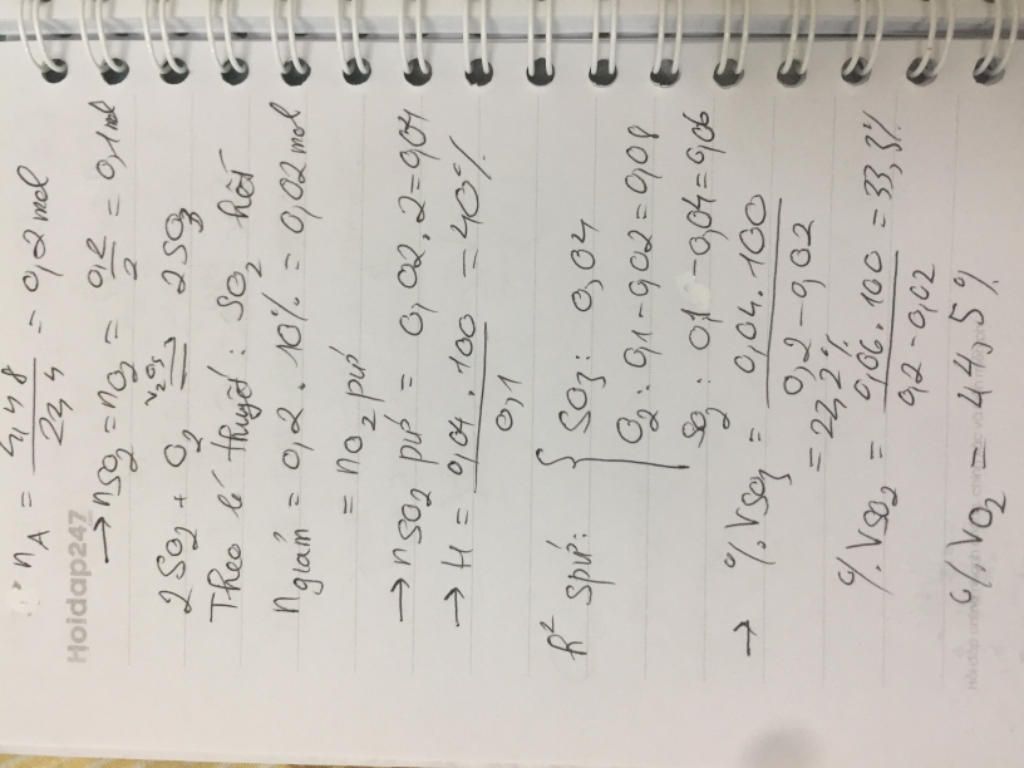 n_A = 4,48/24,4 = 0,2 mol
Hoidap247
→ nSO2 = nO2 = 0,2/2 = 0,1 mol
2SO2 + O2 ⇌ (V2O5) 2SO3
Theo lí thuyết: SO2 hết
n giảm = 0,2 . 10% = 0,02 mol
= nO2 pứ
→ nSO2 pứ = 0,02 . 2 = 0,04
→ H = 0,04 . 100/0,1 = 40%
h² spứ: { SO3: 0,04
O2: 0,1 - 0,02 = 0,08
SO2: 0,1 - 0,04 = 0,06
→ %VSO3 = 0,04 . 100/0,2 - 0,02
= 22,2%
%VSO2 = 0,06 . 100/0,2 - 0,02 = 33,3%
%VO2 = 44,5%